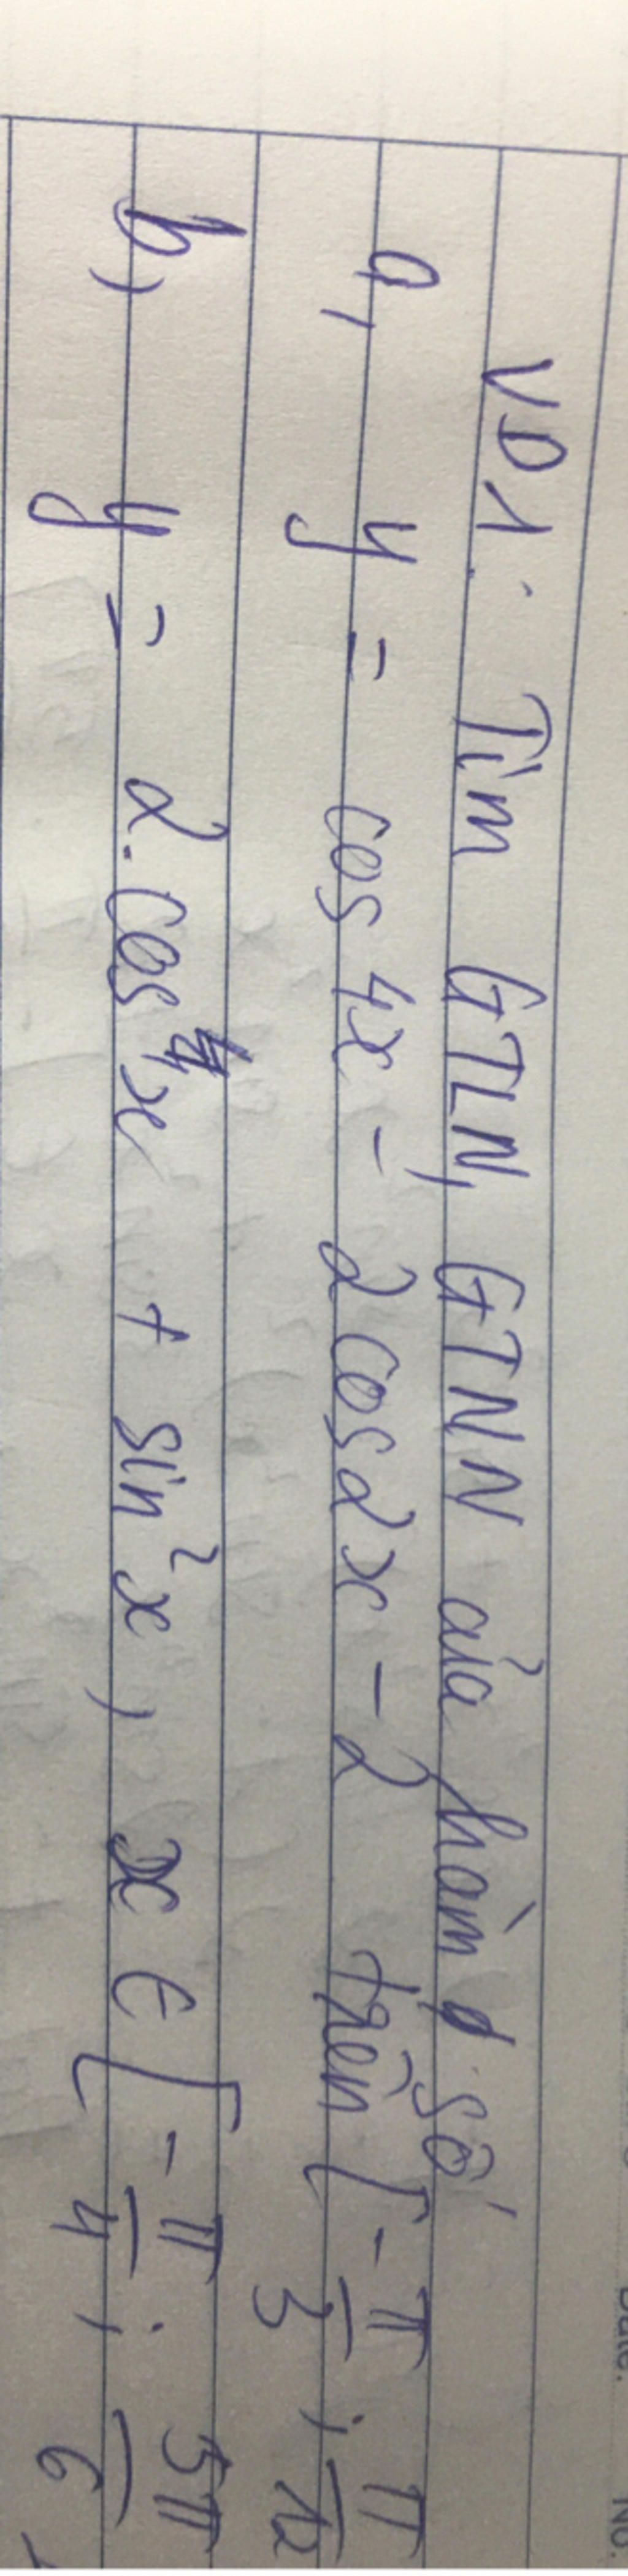 VD1: Tìm GTLN, GTNN của hàm số
a, y = cos4x - 2cos2x - 2 trên [-π/3; π/12
b, y = 2.cos⁴x + sin²x, x ∈ [-π/4; 5π/6]
Date.
No.